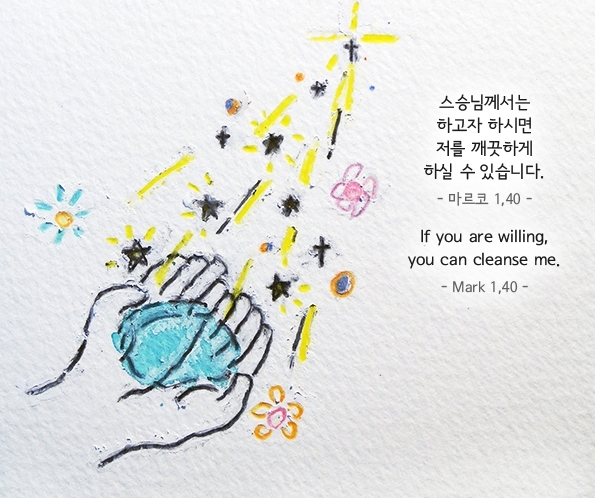 스승님께서는
하고자 하시면
저를 깨끗하게
하실 수 있습니다.
- 마르코 1,40 -
If you are willing,
you can cleanse me.
- Mark 1,40 -